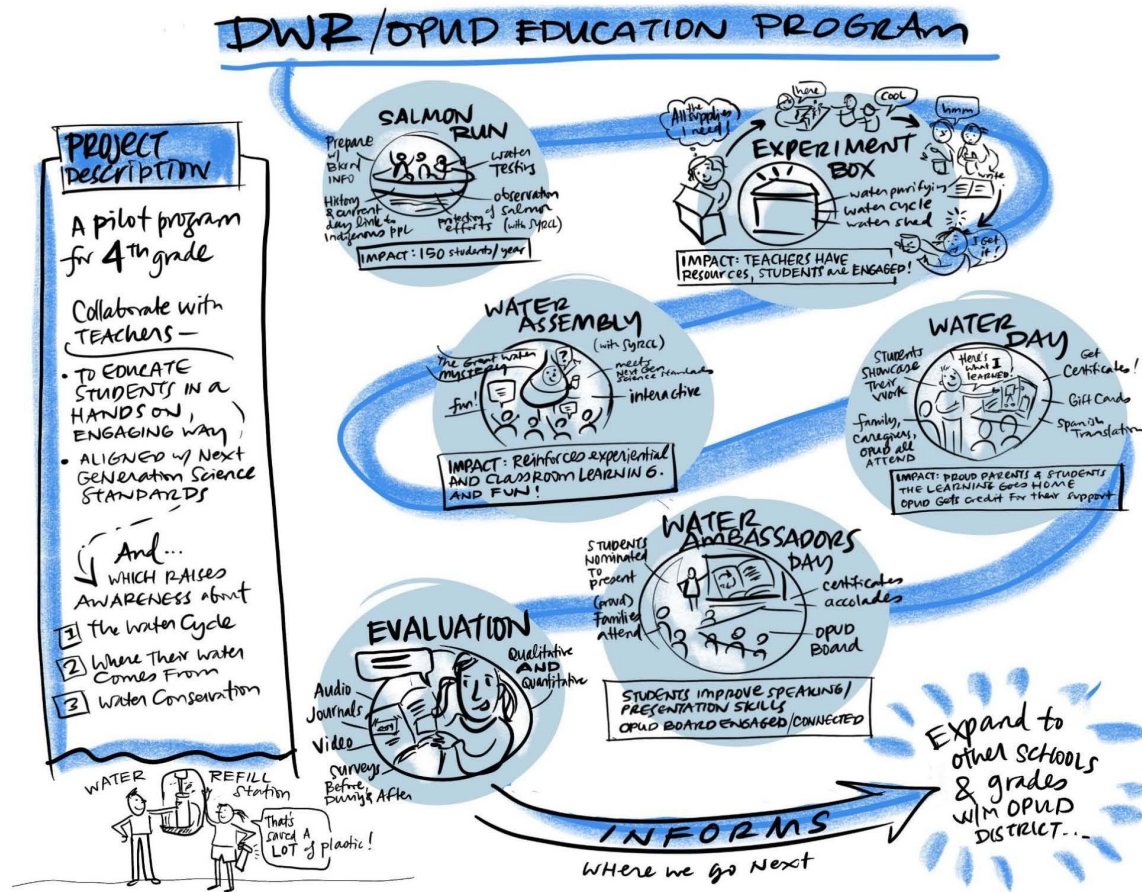 DWR/OPUD EDUCATION PROGRAM
PROJECT
DESCRIPTION
A pilot program
for 4th grade
Collaborate with
TEACHERS—
• TO EDUCATE
STUDENTS IN A
HANDS ON,
ENGAGING WAY
• ALIGNED w/ NEXT
GENERATION SCIENCE
STANDARDS
And...
WHICH RAISES
AWARENESS about
1 The Water Cycle
2 Where Their Water
Comes From
3 Water Conservation
WATER
REFILL
Station
That's
saved A
LOT of plastic!
SALMON
RUN
Prepare
w/
Bkgrn
INFO
History
& current
day link to
Indigenous ppl
protecting
efforts
Water
Testing
observation
of Salmon
(with SYRCL)
IMPACT: 150 students/year
All the
supplies
I need!
here
COOL
hmm
write
I Get
it!
EXPERIMENT
BOX
water purifying
water cycle
water shed
IMPACT: TEACHERS HAVE
Resources, STUDENTS are ENGAGED!
WATER
ASSEMBLY
(with SYRCL)
The Great Water
MYSTERY
?
fun!
meets
Next Gen
Science standards
interactive
IMPACT: Reinforces experiential
AND CLASSROOM LEARNING.
AND FUN!
WATER
DAY
Students
Showcase
Their
work
family,
caregivers,
OPUD all
ATTEND
Here's
what I
LEARNED!
Get
Certificates!
Gift Cards
Spanish
Translation
IMPACT: PROUD PARENTS & STUDENTS
THE LEARNING GOES HOME
OPUD Gets credit for their support
WATER
AMBASSADORS
DAY
STUDENTS
Nominated
To
present
(proud)
Families
attend
certificates
accolades
OPUD
Board
STUDENTS IMPROVE SPEAKING/
PRESENTATION SKILLS
OPUD BOARD ENGAGED/CONNECTED
EVALUATION
Audio
Journals
Video
surveys
Before,
During & After
Qualitative
AND
Quantitative
INFORMS
Where we go Next
Expand to
other SCHOOLS
& grades
w/in OPUD
DISTRICT...